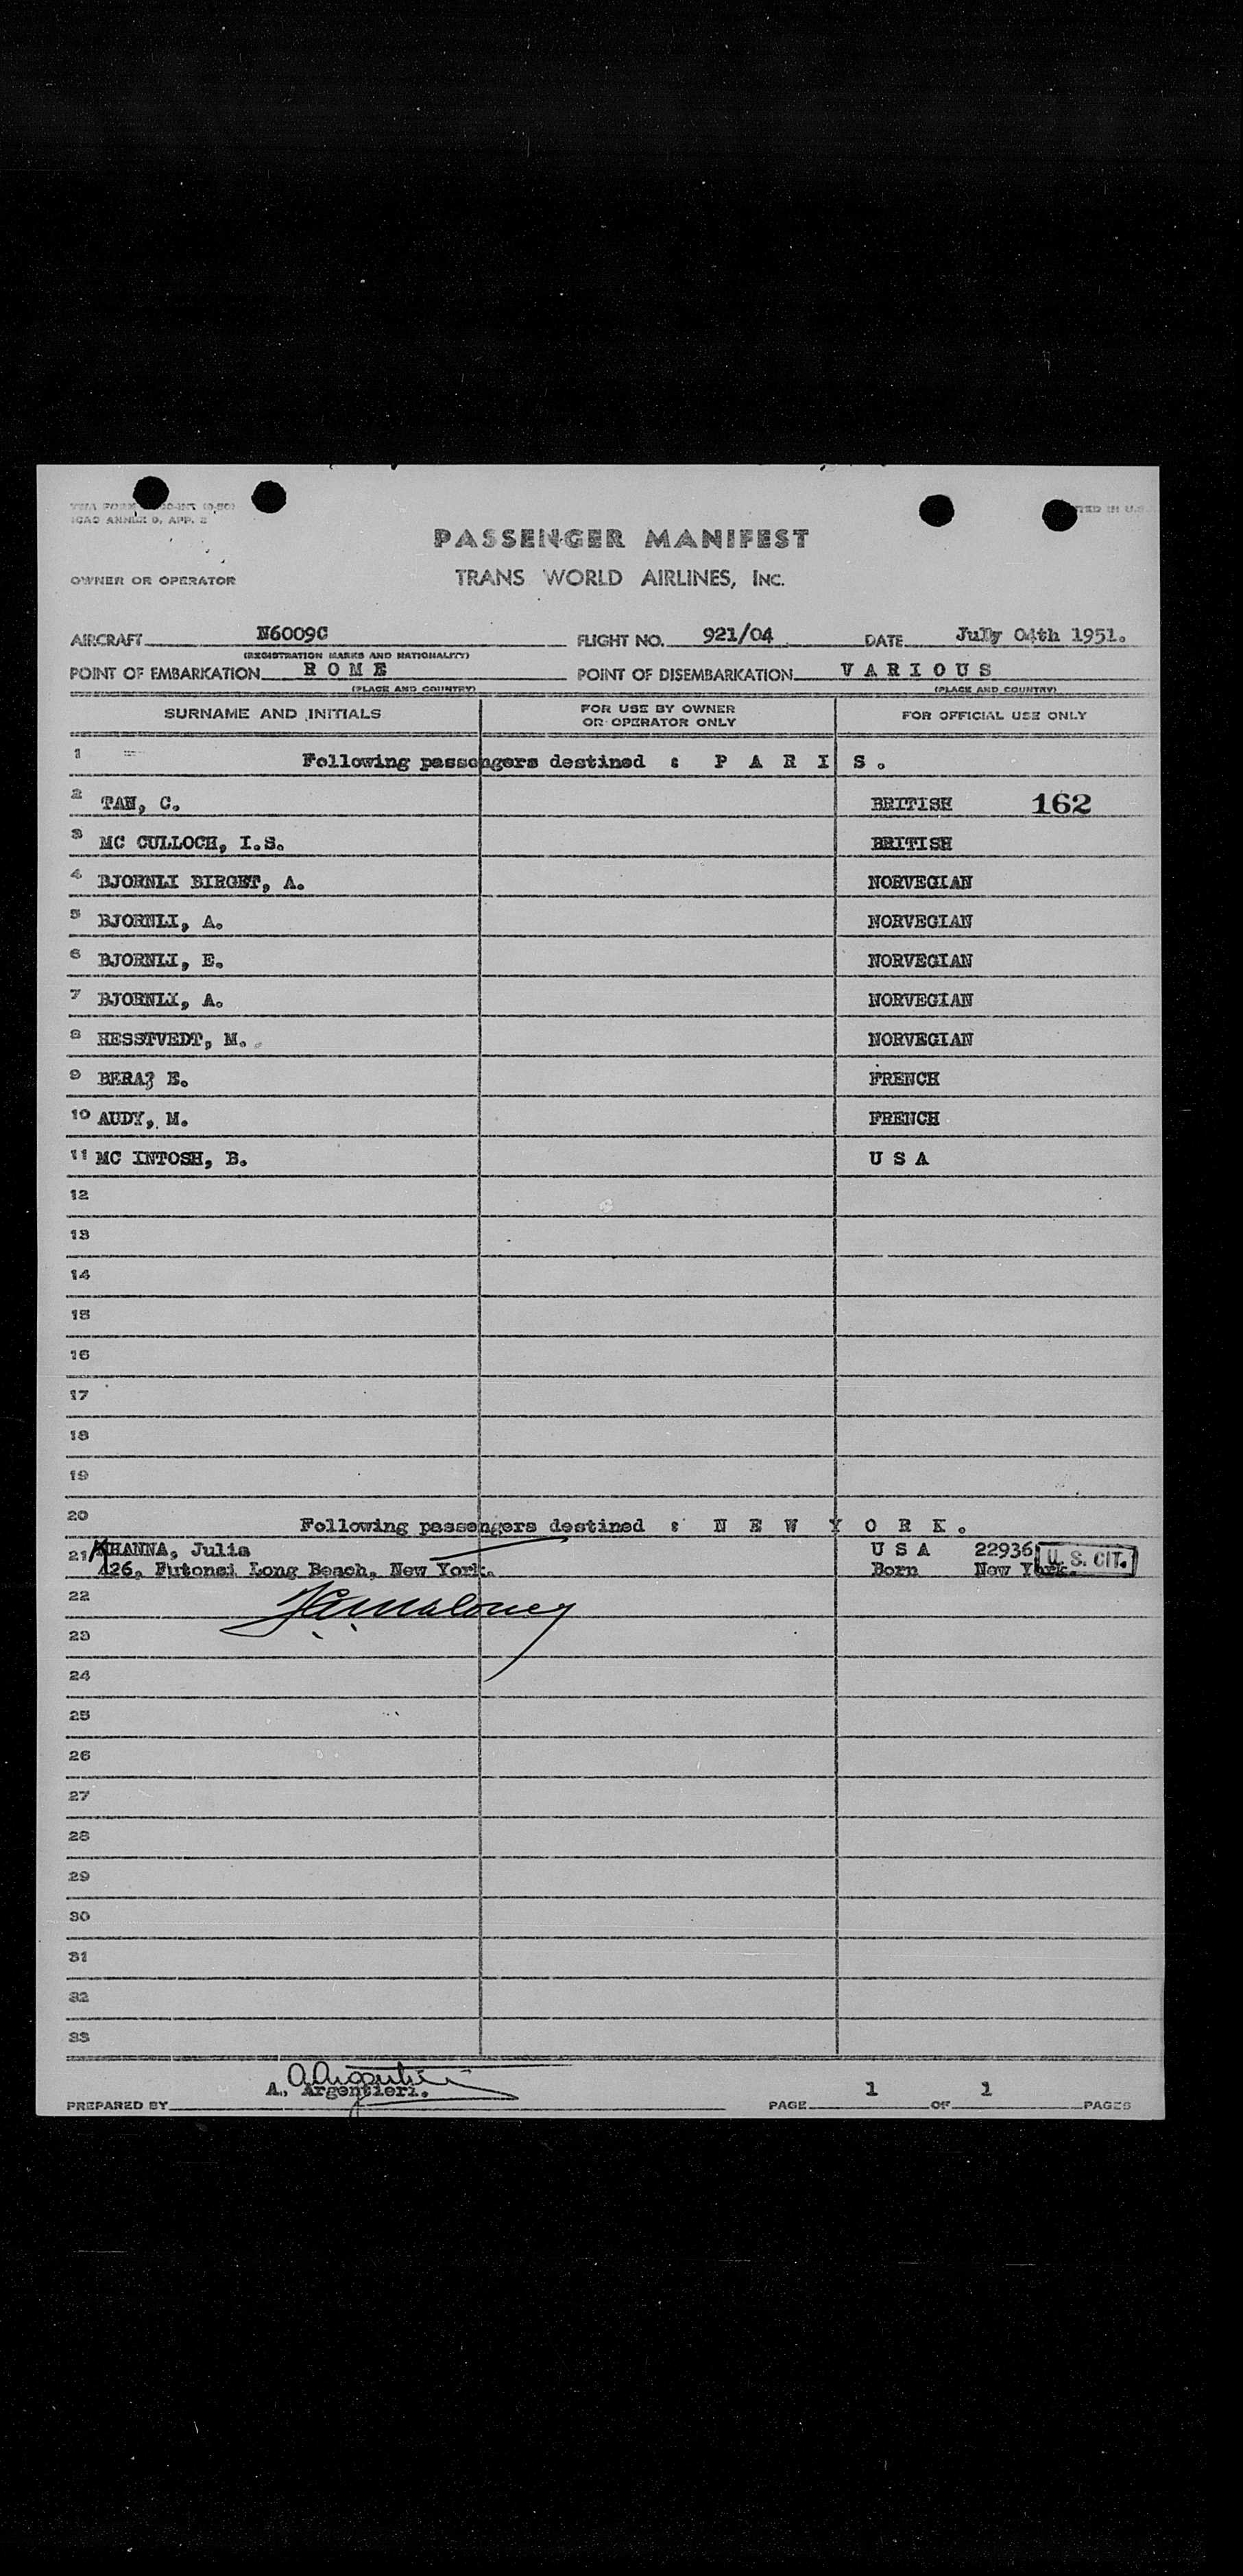 ICAO ANNEX 9, APP. 2
PASSENGER MANIFEST
OWNER OR OPERATOR TRANS WORLD AIRLINES, INC.
AIRCRAFT N6009C FLIGHT NO. 921/04 DATE July 04th 1951.
(REGISTRATION MARKS AND NATIONALITY)
POINT OF EMBARKATION R O M E POINT OF DISEMBARKATION V A R I O U S
(PLACE AND COUNTRY) (PLACE AND COUNTRY)
SURNAME AND INITIALS FOR USE BY OWNER OR OPERATOR ONLY FOR OFFICIAL USE ONLY
1 Following passengers destined : P A R I S .
2 TAN, C. BRITISH 162
3 MC CULLOCH, I.S. BRITISH
4 BJORNLI BIRGET, A. NORVEGIAN
5 BJORNLI, A. NORVEGIAN
6 BJORNLI, E. NORVEGIAN
7 BJORNLI, A. NORVEGIAN
8 HESSTVEDT, M. NORVEGIAN
9 BERA, E. FRENCH
10 AUDY, M. FRENCH
11 MC INTOSH, B. U S A
12
13
14
15
16
17
18
19
20 Following passengers destined : N E W Y O R K .
21 KHANNA, Julia U S A 22936 U. S. CIT.
126, Long Beach, New York. Born New York.
22
23
24
25
26
27
28
29
30
31
32
33
A. Argentieri.
PREPARED BY PAGE 1 OF 1 PAGES